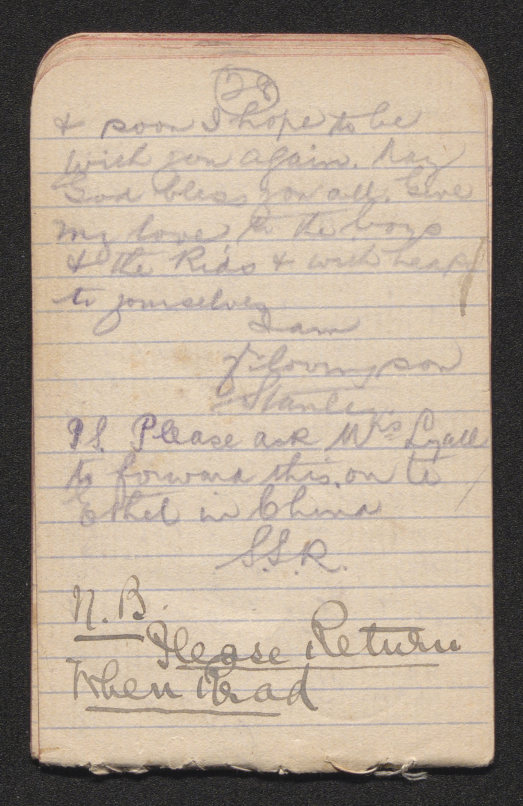 28
& soon I hope to be
with you again. May
God bless you all. Give
my love to the boys
& the Kids & with heaps
to yourselves
I am
Yr loving son
Stanley.
P.S. Please ask Mrs Lyall
to forward this on to
Ethel in China
S.S.R.
N.B.
Please Return
When Read